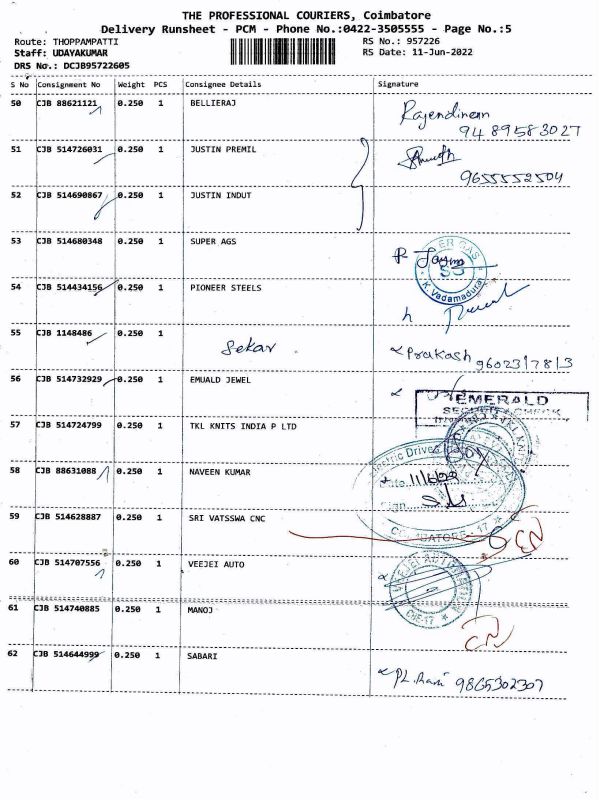 THE PROFESSIONAL COURIERS, Coimbatore
Delivery Runsheet - PCM - Phone No.:0422-3505555 - Page No.:5
Route: THOPPAMPATTI RS No.: 957226
Staff: UDAYAKUMAR RS Date: 11-Jun-2022
DRS No.: DCJB95722605
S No Consignment No Weight PCS Consignee Details Signature
50 CJB 88621121 0.250 1 BELLIERAJ
9489583027
51 CJB 514726031 0.250 1 JUSTIN PREMIL
9655552504
52 CJB 514690867 0.250 1 JUSTIN INDUT
53 CJB 514680348 0.250 1 SUPER AGS
K. Vadamadurai
54 CJB 514434156 0.250 1 PIONEER STEELS
55 CJB 1148486 0.250 1 Sekar Prakash
56 CJB 514732929 0.250 1 EMUALD JEWEL
EMERALD
57 CJB 514724799 0.250 1 TKL KNITS INDIA P LTD
58 CJB 88631088 0.250 1 NAVEEN KUMAR
59 CJB 514628887 0.250 1 SRI VATSSWA CNC
60 CJB 514707556 0.250 1 VEEJEI AUTO
61 CJB 514740885 0.250 1 MANOJ
62 CJB 514644999 0.250 1 SABARI
9865302307